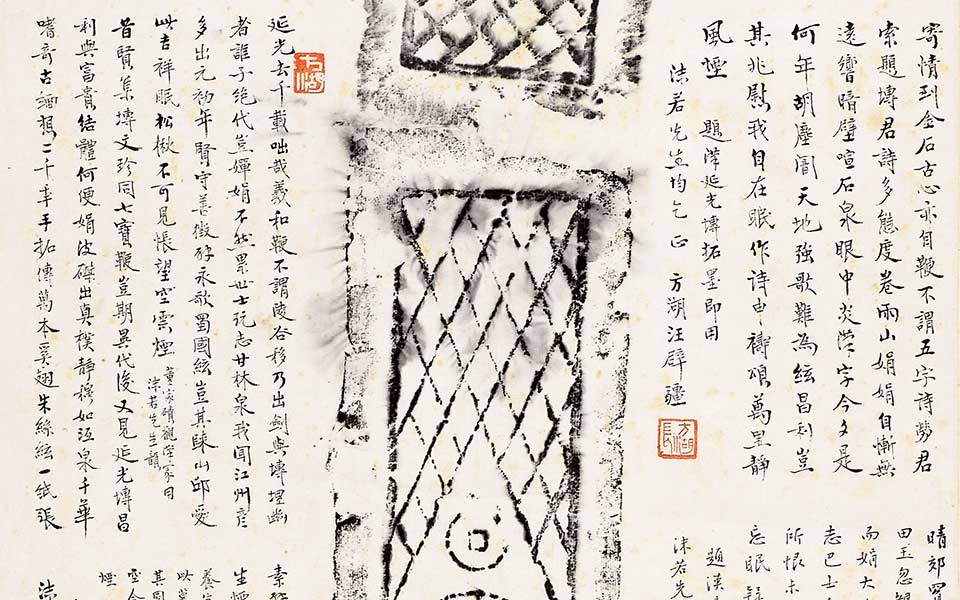 寄情到金石古心亦自鞭不謂五字詩勞君
索題塼君詩多態度卷雨山娟娟自慚無
遠響暗壁喧石泉眼中炎漢字今夕是
何年胡塵闇天地強歌難為絃昌利豈
其兆慰我自在眠作詩申禱頌萬里靜
風煙 題漢延光塼拓墨即用
沫若先生均乞正 方湖汪辟疆
方湖
延光去千載咄哉羲和鞭不謂陵谷移乃出劍與塼埋幽
者誰子絕代豈嬋娟不然累世士玩志甘林泉我聞江州彥
多出元初年賢守善徽永歌蜀國絃豈其山邱受
此吉祥眠松楸不可見悵望空雲煙
沫若先生韻
昔賢集塼文珍同七寶鞭豈期異代後又見延光塼昌
利與富貴結體何便娟波磔出真樸靜穆如沍泉千華
嗜奇古緬想二千年手拓傳萬本奚翅朱絲絃一紙張
方湖
晴郊買
田王忽
而娟大
志巴士
所恨未
忘眠
題漢
沫若先
素
生煙
養
以
其
空
煙
沫